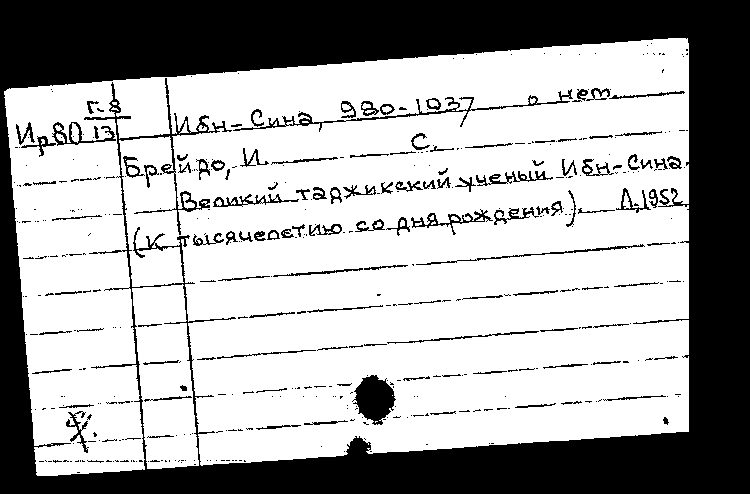 Ир80 Г-8/13
Ибн-Сина, 980-1037 о нем.
Брейдо, И. С.
Великий таджикский ученый Ибн-Сина.
(К тысячелетию со дня рождения). Л, 1952